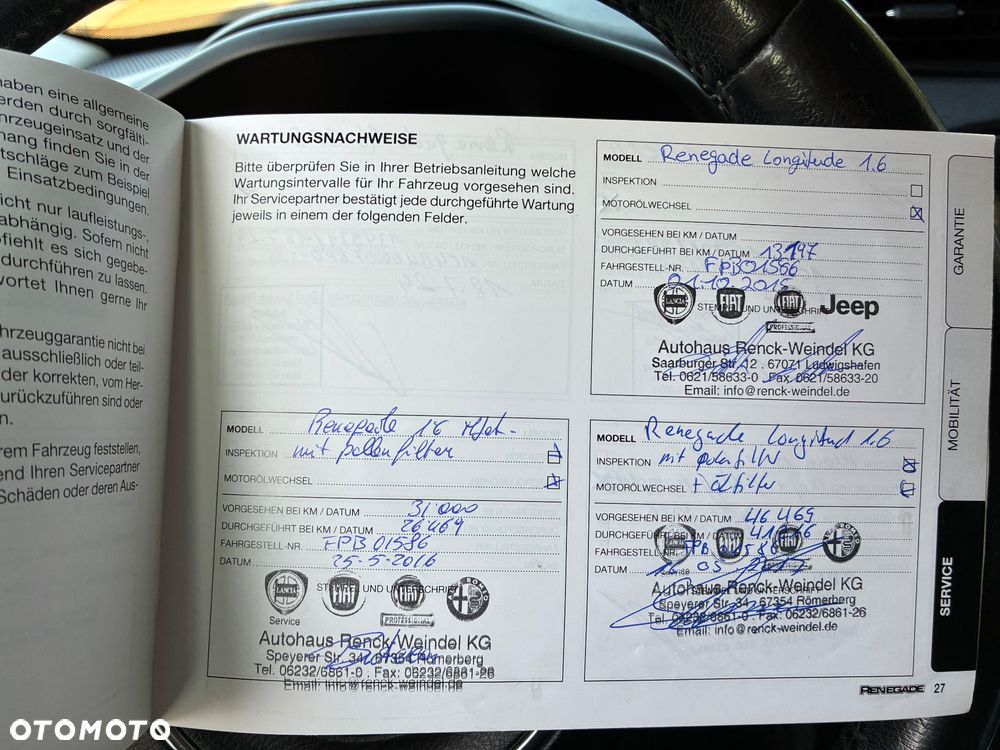 haben eine allgemeine
erden durch sorgfälti-
hrzeugeinsatz und der
hang finden Sie in der
tschläge zum Beispiel
Einsatzbedingungen.
icht nur laufleistungs-,
abhängig. Sofern nicht
ofiehlt es sich gegebe-
durchführen zu lassen.
wortet Ihnen gerne Ihr
hrzeuggarantie nicht bei
ausschließlich oder teil-
der korrekten, vom Her-
zurückzuführen sind oder
n.
rem Fahrzeug feststellen,
end Ihren Servicepartner
Schäden oder deren Aus-
WARTUNGSNACHWEISE
Bitte überprüfen Sie in Ihrer Betriebsanleitung welche
Wartungsintervalle für Ihr Fahrzeug vorgesehen sind.
Ihr Servicepartner bestätigt jede durchgeführte Wartung
jeweils in einem der folgenden Felder.
MODELL Renegade Longitude 1.6
INSPEKTION
MOTORÖLWECHSEL
VORGESEHEN BEI KM / DATUM
DURCHGEFÜHRT BEI KM / DATUM 13197
FAHRGESTELL-NR. FPB01586
DATUM 01.10.2015
LANCIA FIAT FIAT Jeep
STEMPEL UND UNTERSCHRIFT
PROFESSIONAL
Autohaus Renck-Weindel KG
Saarburger Str. 12 . 67071 Ludwigshafen
Tel. 0621/58633-0 . Fax 0621/58633-20
Email: info@renck-weindel.de
MODELL Renegade 1.6
INSPEKTION mit Pollenfilter
MOTORÖLWECHSEL
VORGESEHEN BEI KM / DATUM 31.000
DURCHGEFÜHRT BEI KM / DATUM 26.469
FAHRGESTELL-NR. FPB 01586
DATUM 25-5-2016
STEMPEL UND UNTERSCHRIFT
LANCIA FIAT FIAT
Service PROFESSIONAL
Autohaus Renck-Weindel KG
Speyerer Str. 34 . 67354 Römerberg
Tel. 06232/6861-0 . Fax: 06232/6861-26
Email: info@renck-weindel.de
MODELL Renegade Longitud 1.6
INSPEKTION mit
MOTORÖLWECHSEL + Ölfilter
VORGESEHEN BEI KM / DATUM 46.469
DURCHGEFÜHRT BEI KM / DATUM
FAHRGESTELL-NR. FPB 01586
DATUM 16 05 2017
Autohaus Renck-Weindel KG
Speyerer Str. 34 . 67354 Römerberg
Tel. 06232/6861-0 . Fax: 06232/6861-26
Email: info@renck-weindel.de
GARANTIE
MOBILITÄT
SERVICE
RENEGADE 27
OTOMOTO